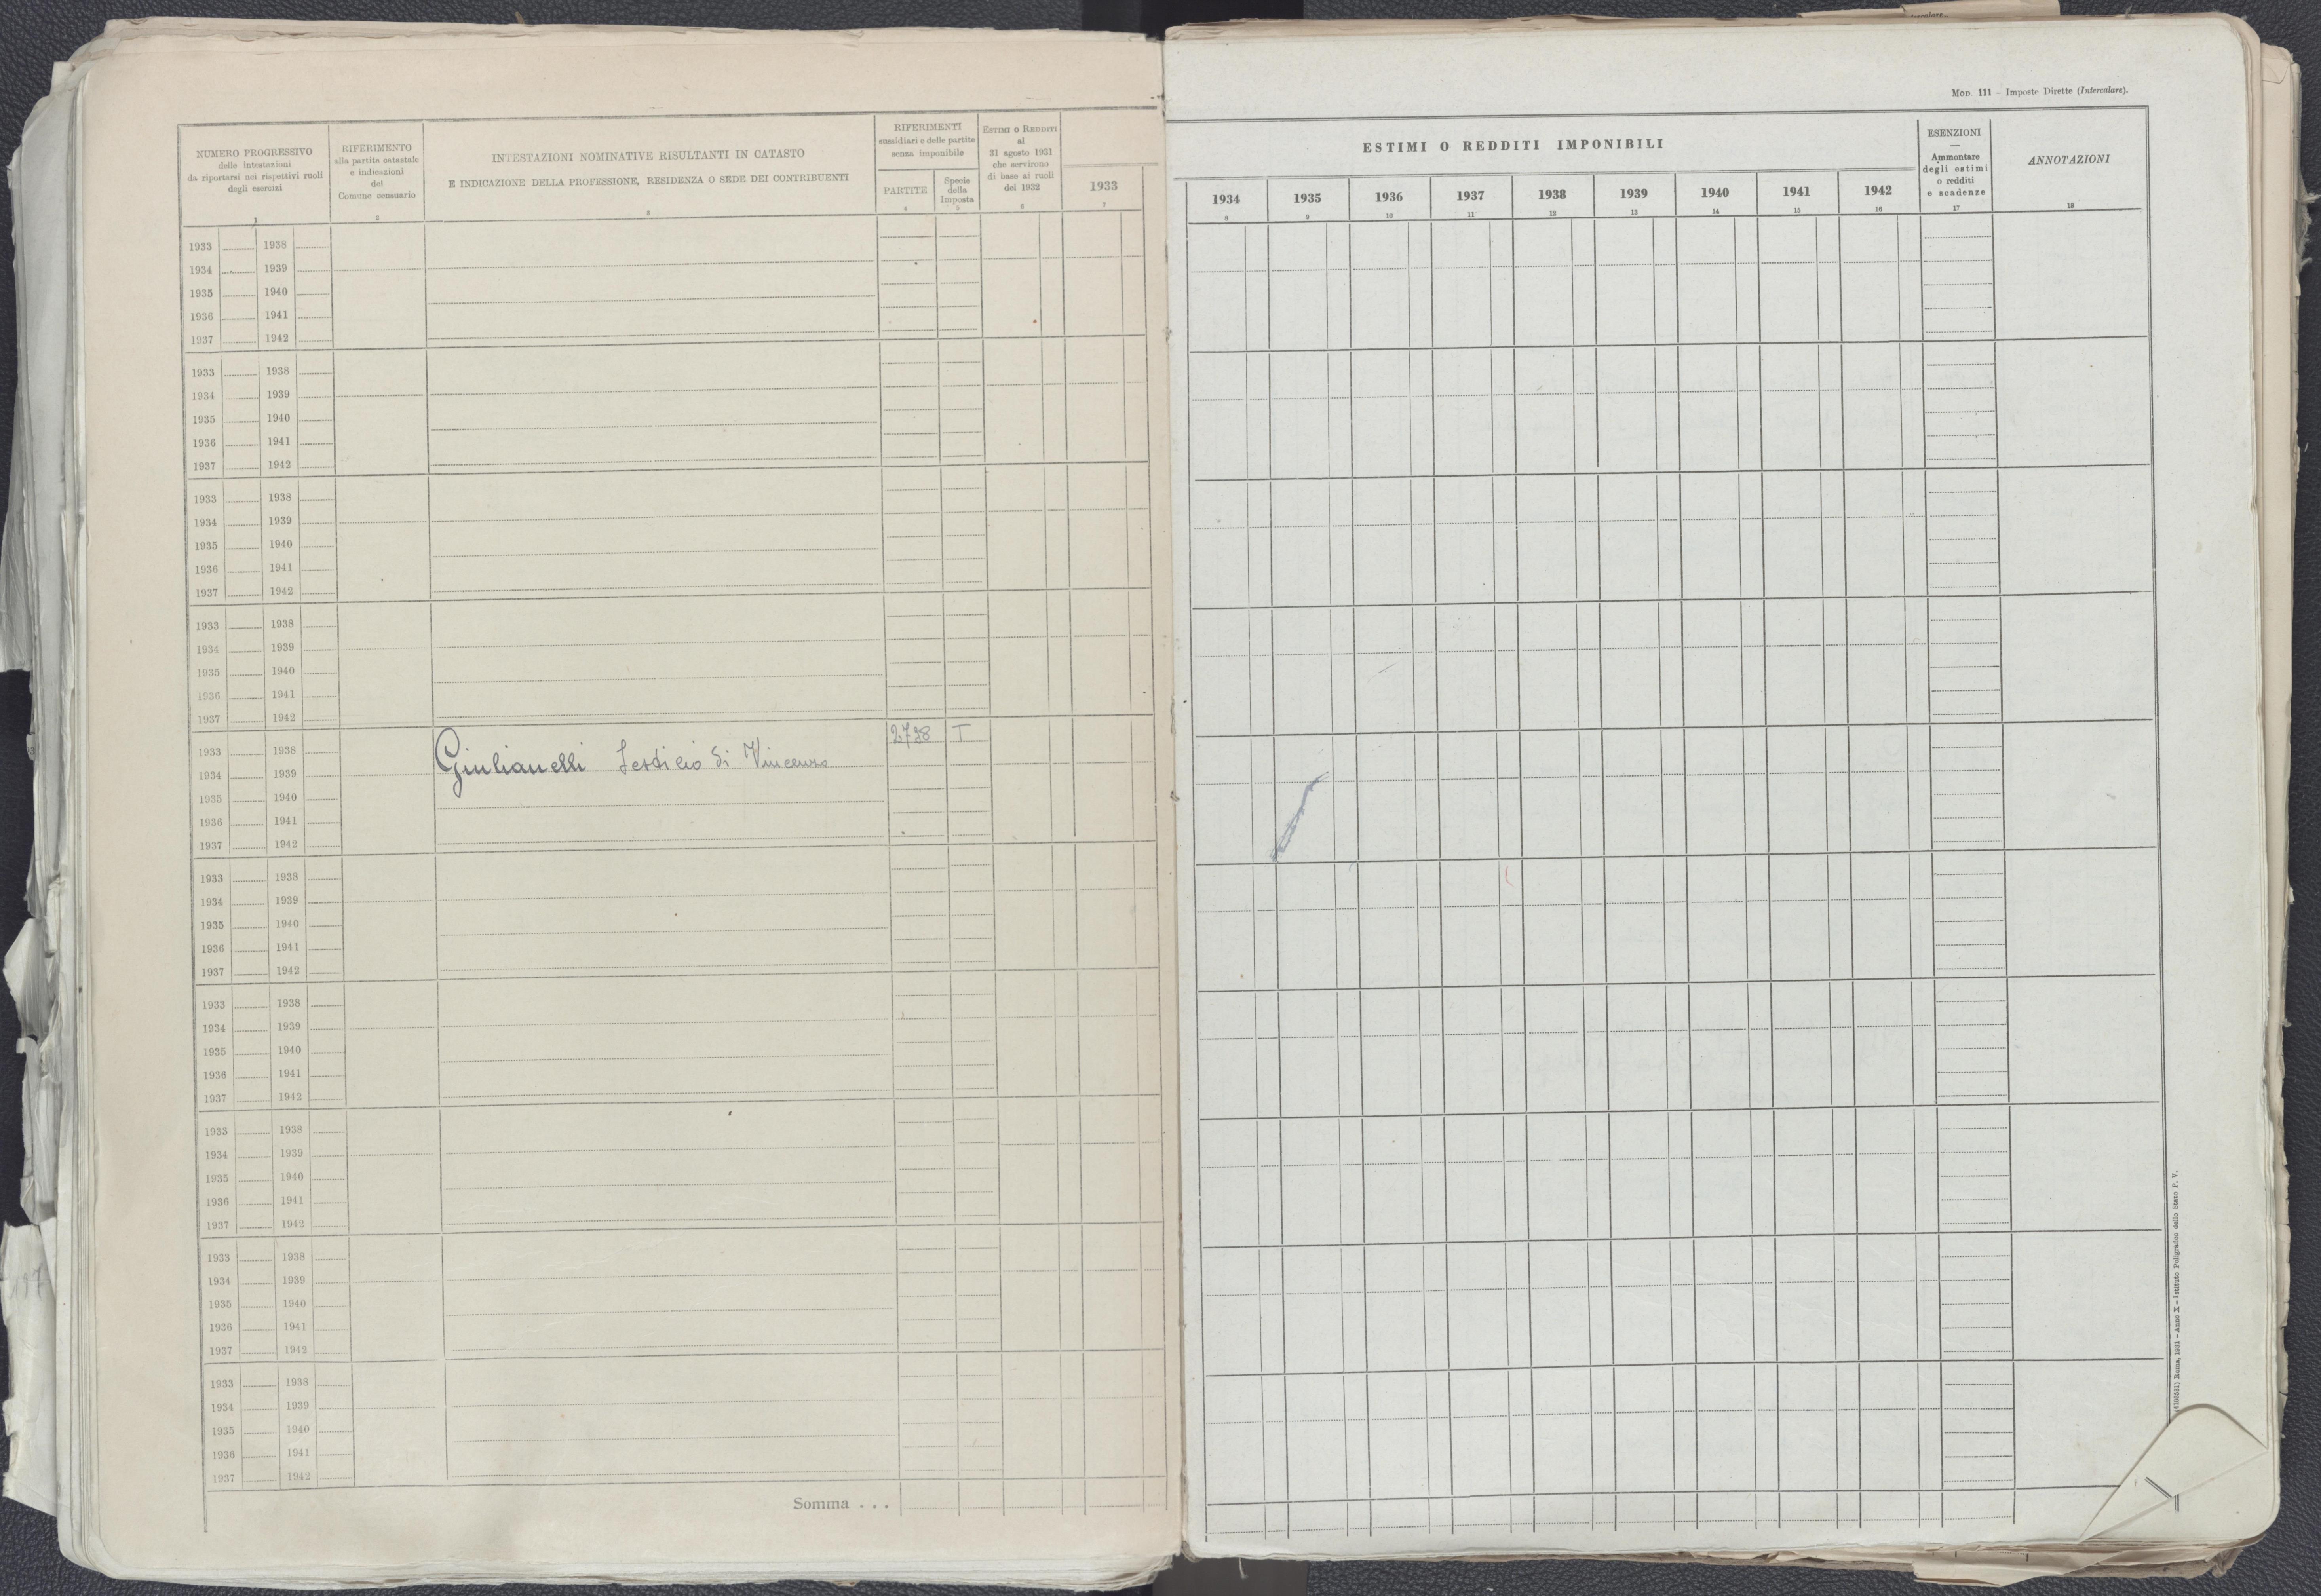 Mod. 111 - Imposte Dirette (Intercalare).
NUMERO PROGRESSIVO
delle intestazioni
da riportarsi nei rispettivi ruoli
degli esercizi
1
RIFERIMENTO
alla partita catastale
e indicazioni
del
Comune censuario
2
INTESTAZIONI NOMINATIVE RISULTANTI IN CATASTO
E INDICAZIONE DELLA PROFESSIONE, RESIDENZA O SEDE DEI CONTRIBUENTI
3
RIFERIMENTI
sussidiari e delle partite
senza imponibile
PARTITE
4
Specie
della
Imposta
5
ESTIMI O REDDITI
al
31 agosto 1931
che servirono
di base ai ruoli
del 1932
6
1933
7
ESTIMI O REDDITI IMPONIBILI
1934 1935 1936 1937 1938 1939 1940 1941 1942
8 9 10 11 12 13 14 15 16
ESENZIONI
—
Ammontare
degli estimi
o redditi
e scadenze
17
ANNOTAZIONI
18
1933 1938
1934 1939
1935 1940
1936 1941
1937 1942
1933 1938
1934 1939
1935 1940
1936 1941
1937 1942
1933 1938
1934 1939
1935 1940
1936 1941
1937 1942
1933 1938
1934 1939
1935 1940
1936 1941
1937 1942
1933 1938 T
1934 1939 Giulianelli di Vincenzo
1935 1940
1936 1941
1937 1942
1933 1938
1934 1939
1935 1940
1936 1941
1937 1942
1933 1938
1934 1939
1935 1940
1936 1941
1937 1942
1933 1938
1934 1939
1935 1940
1936 1941
1937 1942
1933 1938
1934 1939
1935 1940
1936 1941
1937 1942
1933 1938
1934 1939
1935 1940
1936 1941
1937 1942
Somma . . .
Roma, 1931 - Anno X - Istituto Poligrafico dello Stato P. V.